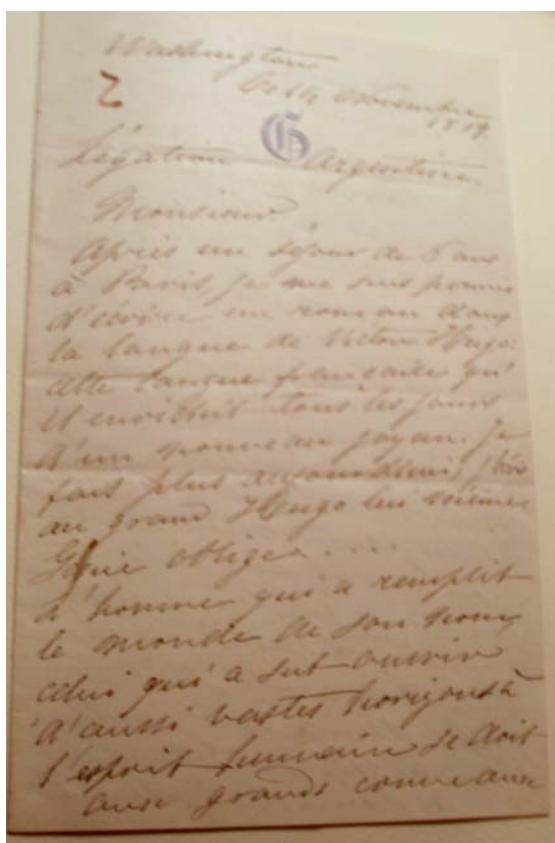 Washington
Ce 14 Novembre
1879
G
Légation Argentine
Monsieur
Après un séjour de 6 ans
à Paris, je me suis permis
d'écrire un roman dans
la langue de Victor Hugo:
cette langue française qu'
il enrichit tous les jours
d'un nouveau joyau. Je
fais plus aujourdhui, j'écris
au grand Hugo lui même
Génie oblige....
L'homme qui a remplit
le monde de son nom,
celui qui a sut ouvrir
d'aussi vastes horizons à
l'esprit humain se doit
aux grands comme aux